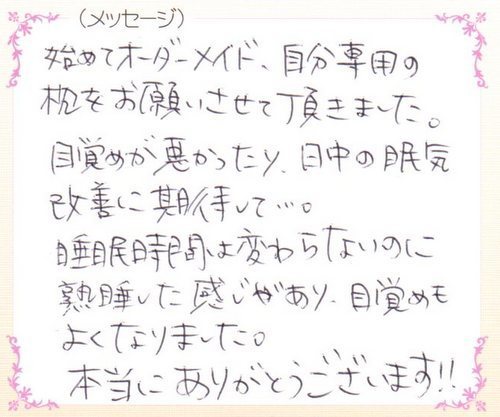 (メッセージ)
始めてオーダーメイド、自分専用の
枕をお願いさせて頂きました。
目覚めが悪かったり、日中の眠気
改善に期待して…。
睡眠時間は変わらないのに
熟睡した感じがあり、目覚めも
よくなりました。
本当にありがとうございます!!